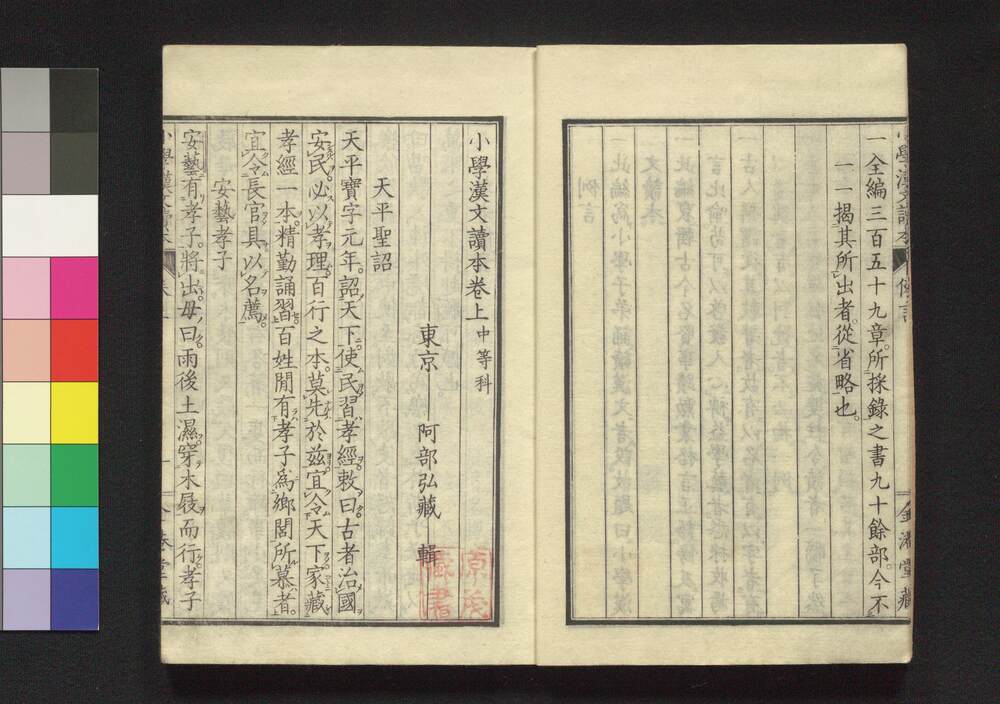 一全編三百五十九章。所採錄之書九十餘部。今不
一一揭其所出者。從省略也。
金港堂藏
小學漢文讀本卷上中等科
東京 阿部弘藏 輯
天平聖詔
天平寶字元年。詔天下。使民習孝經。敕曰。古者治國
安民。必以孝理。百行之本。莫先於玆。宜令天下家藏
孝經一本。精勤誦習。百姓閒有孝子爲鄉閭所慕者。
宜令長官具以名薦。
安藝孝子
安藝有孝子。將出。母曰。雨後土濕。穿木屐而行。孝子